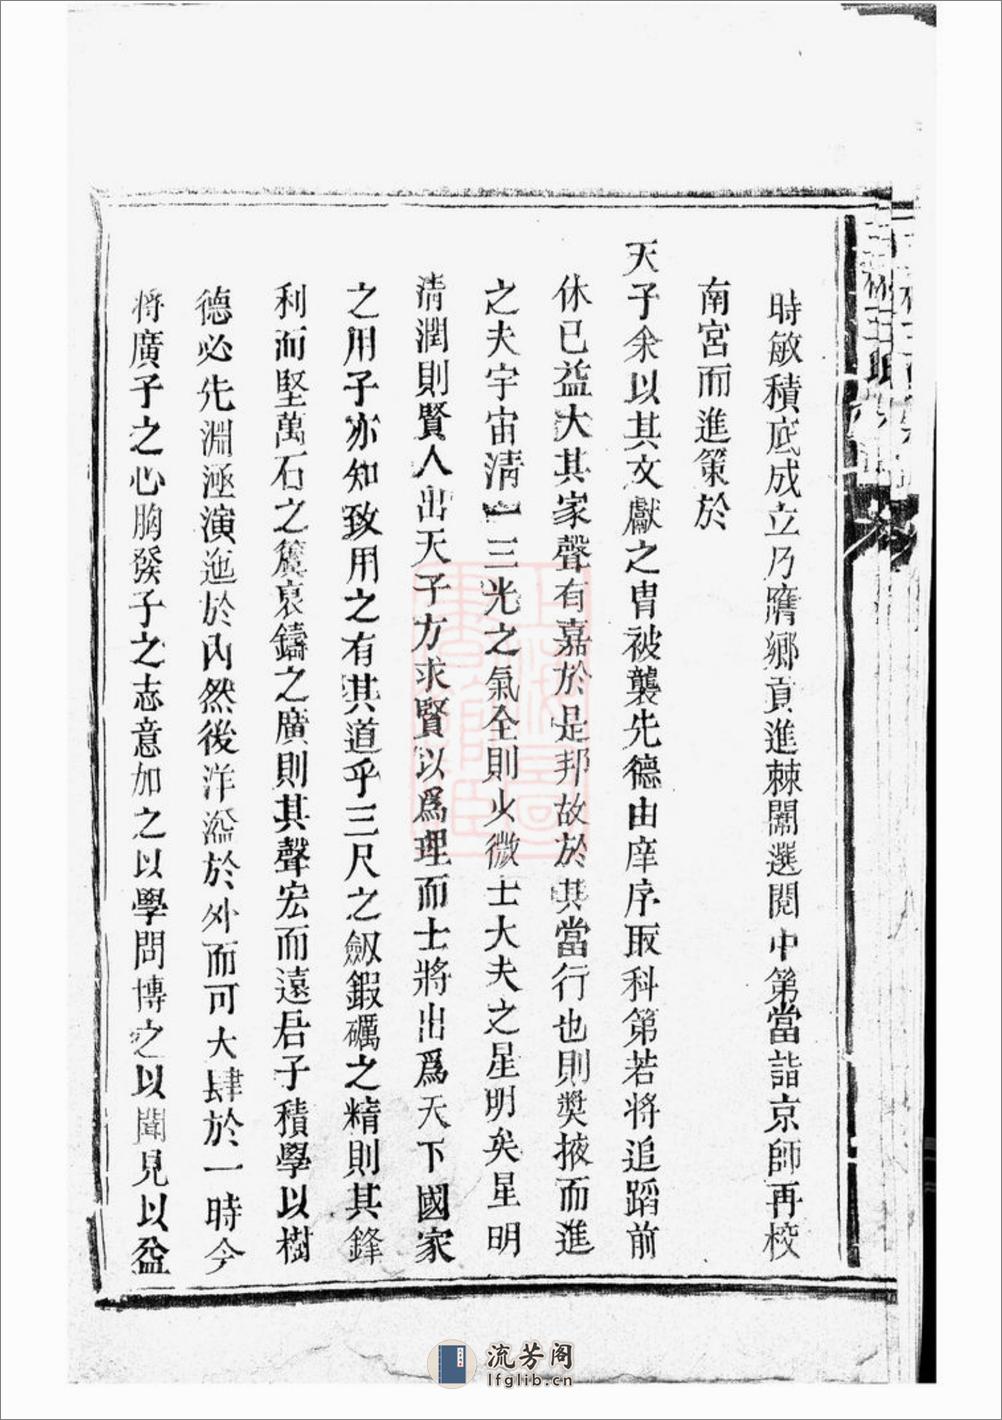 時敏積底成立乃膺鄉貢進棘闈選閱中第當詣京師再校
南宮而進策於
天子余以其文獻之胄被襲先德由庠序取科第若將追蹈前
休已益大其家聲有嘉於是邦故於其當行也則奬掖而進
之夫宇宙清一三光之氣全則火微士大夫之星明矣星明
清潤則賢人出天子方求賢以爲理而士將出爲天下國家
之用子亦知致用之有其道乎三尺之劔鍜礪之精則其鋒
利而堅萬石之簴裒鑄之廣則其聲宏而遠君子積學以樹
德必先淵涵演迤於內然後洋溢於外而可大肆於一時今
將廣子之心胸發子之志意加之以學問博之以聞見以益
流芳阁
lfglib.cn